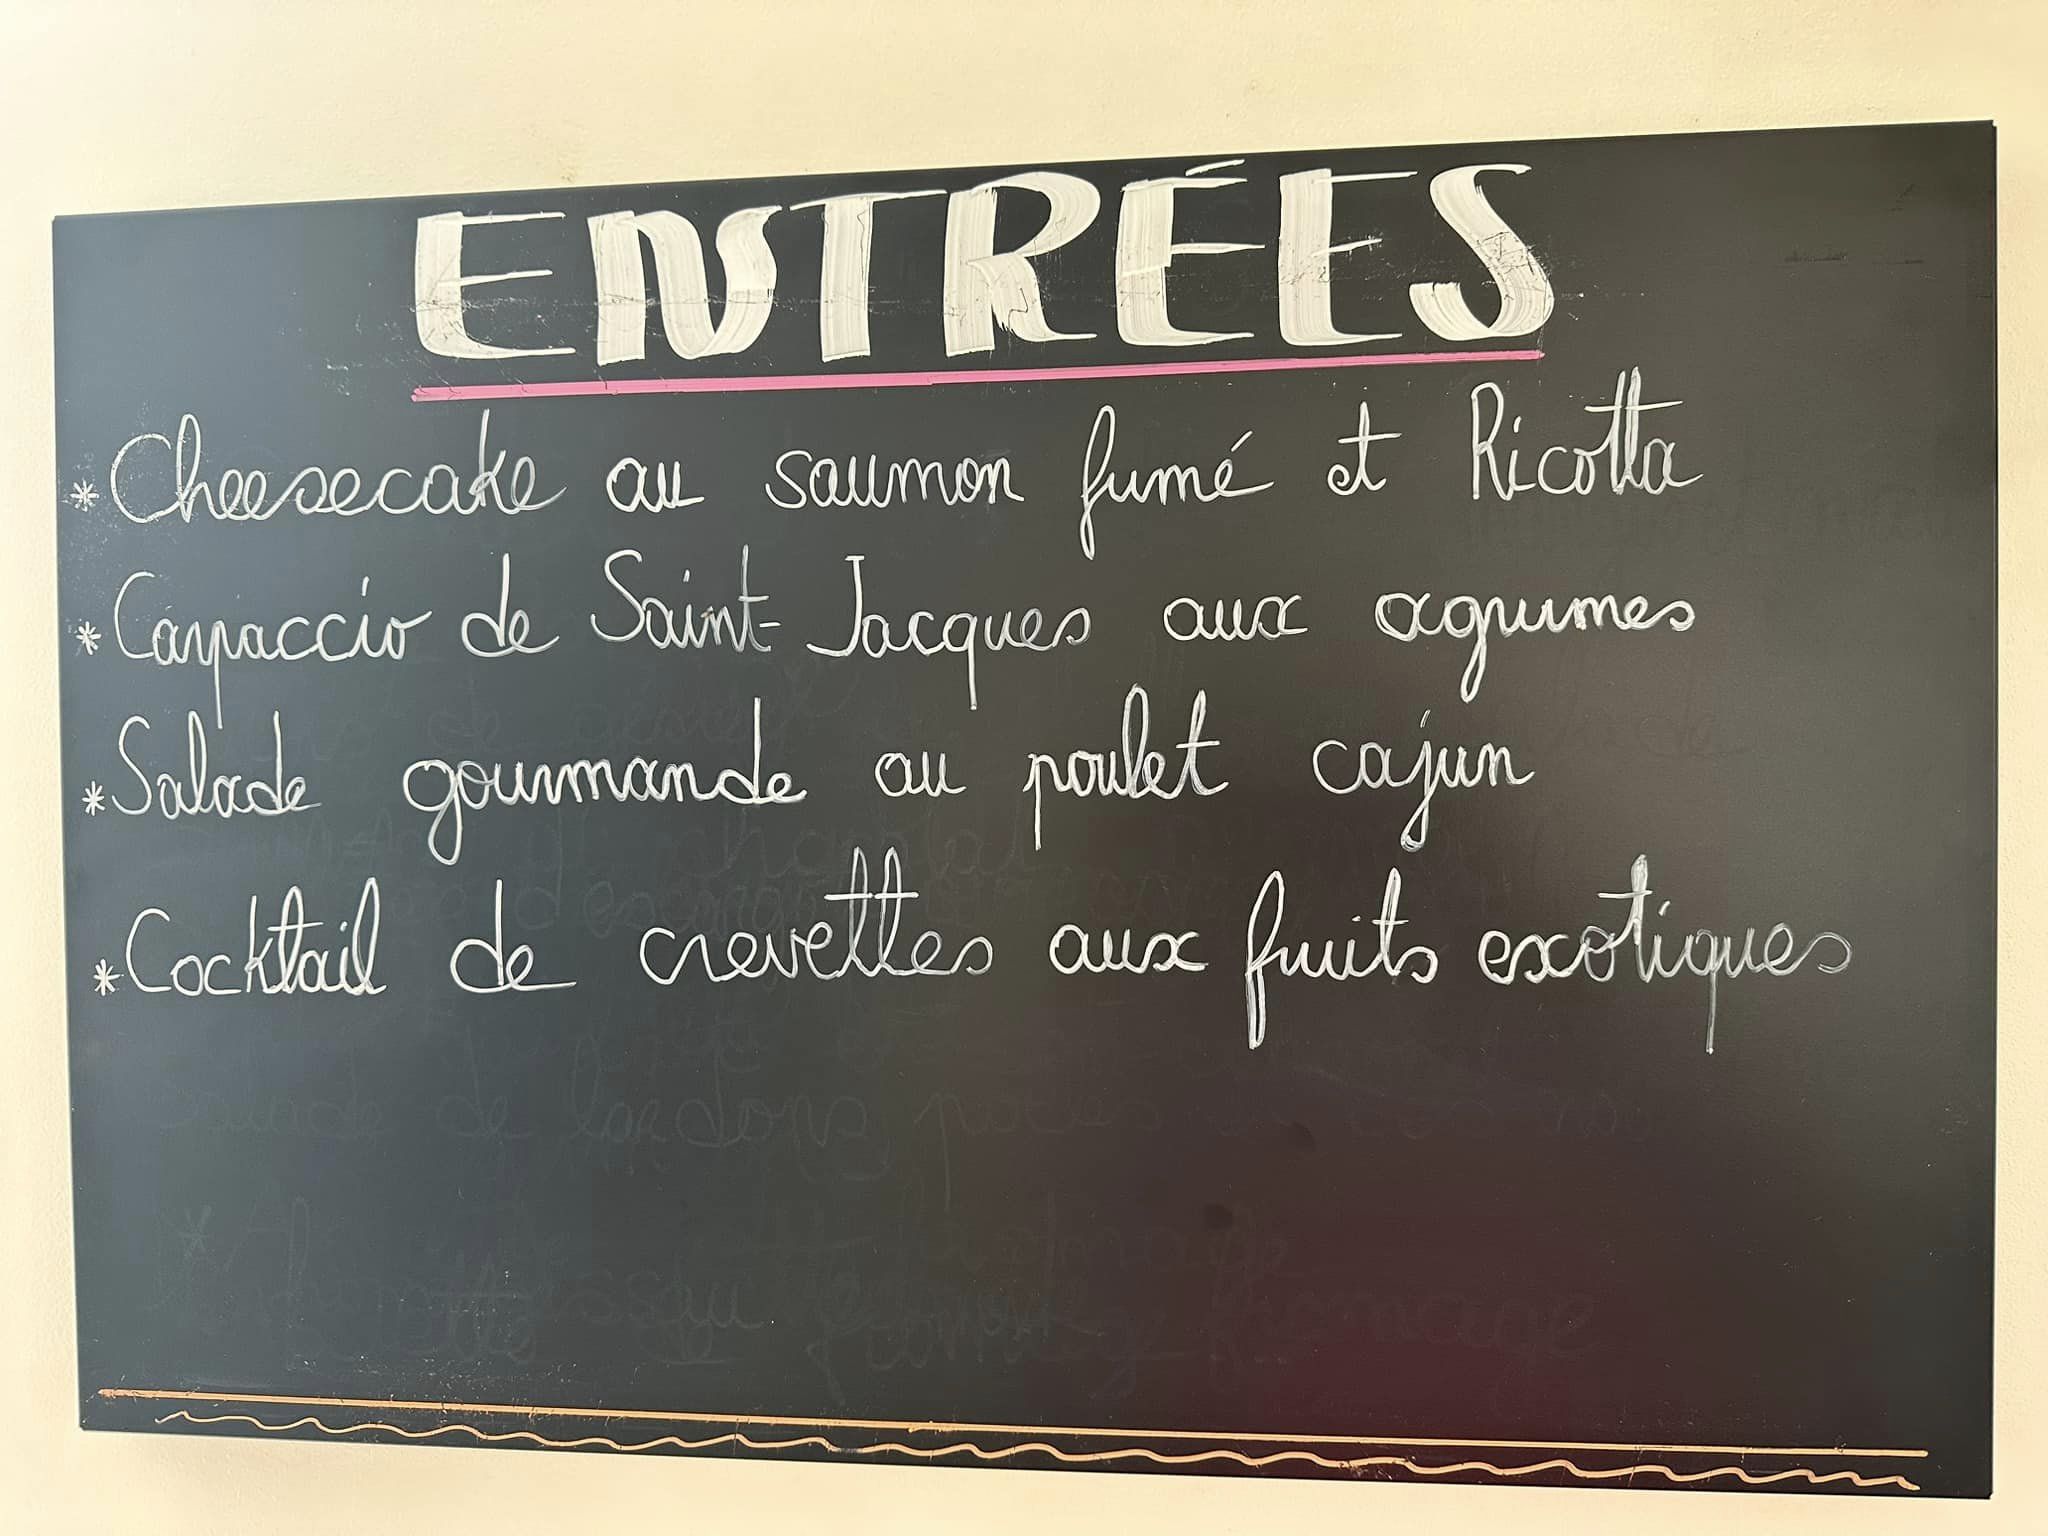 ENTRÉES
* Cheesecake au saumon fumé et Ricotta
* Carpaccio de Saint-Jacques aux agrumes
* Salade gourmande au poulet cajun
* Cocktail de crevettes aux fruits exotiques